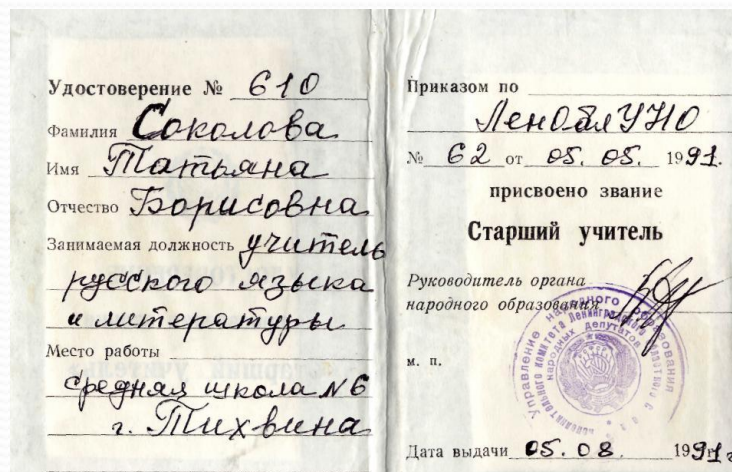 Удостоверение № 610
Фамилия Соколова
Имя Татьяна
Отчество Борисовна
Занимаемая должность учитель
русского языка
и литературы
Место работы
средняя школа №6
г. Тихвина
Приказом по
ЛенОблУНО
№ 62 от 05. 05. 1991.
присвоено звание
Старший учитель
Руководитель органа
народного образования
м. п.
Управление народного образования
исполнительного комитета Ленинградского областного Совета
народных депутатов
Дата выдачи 05. 08. 1991 г.